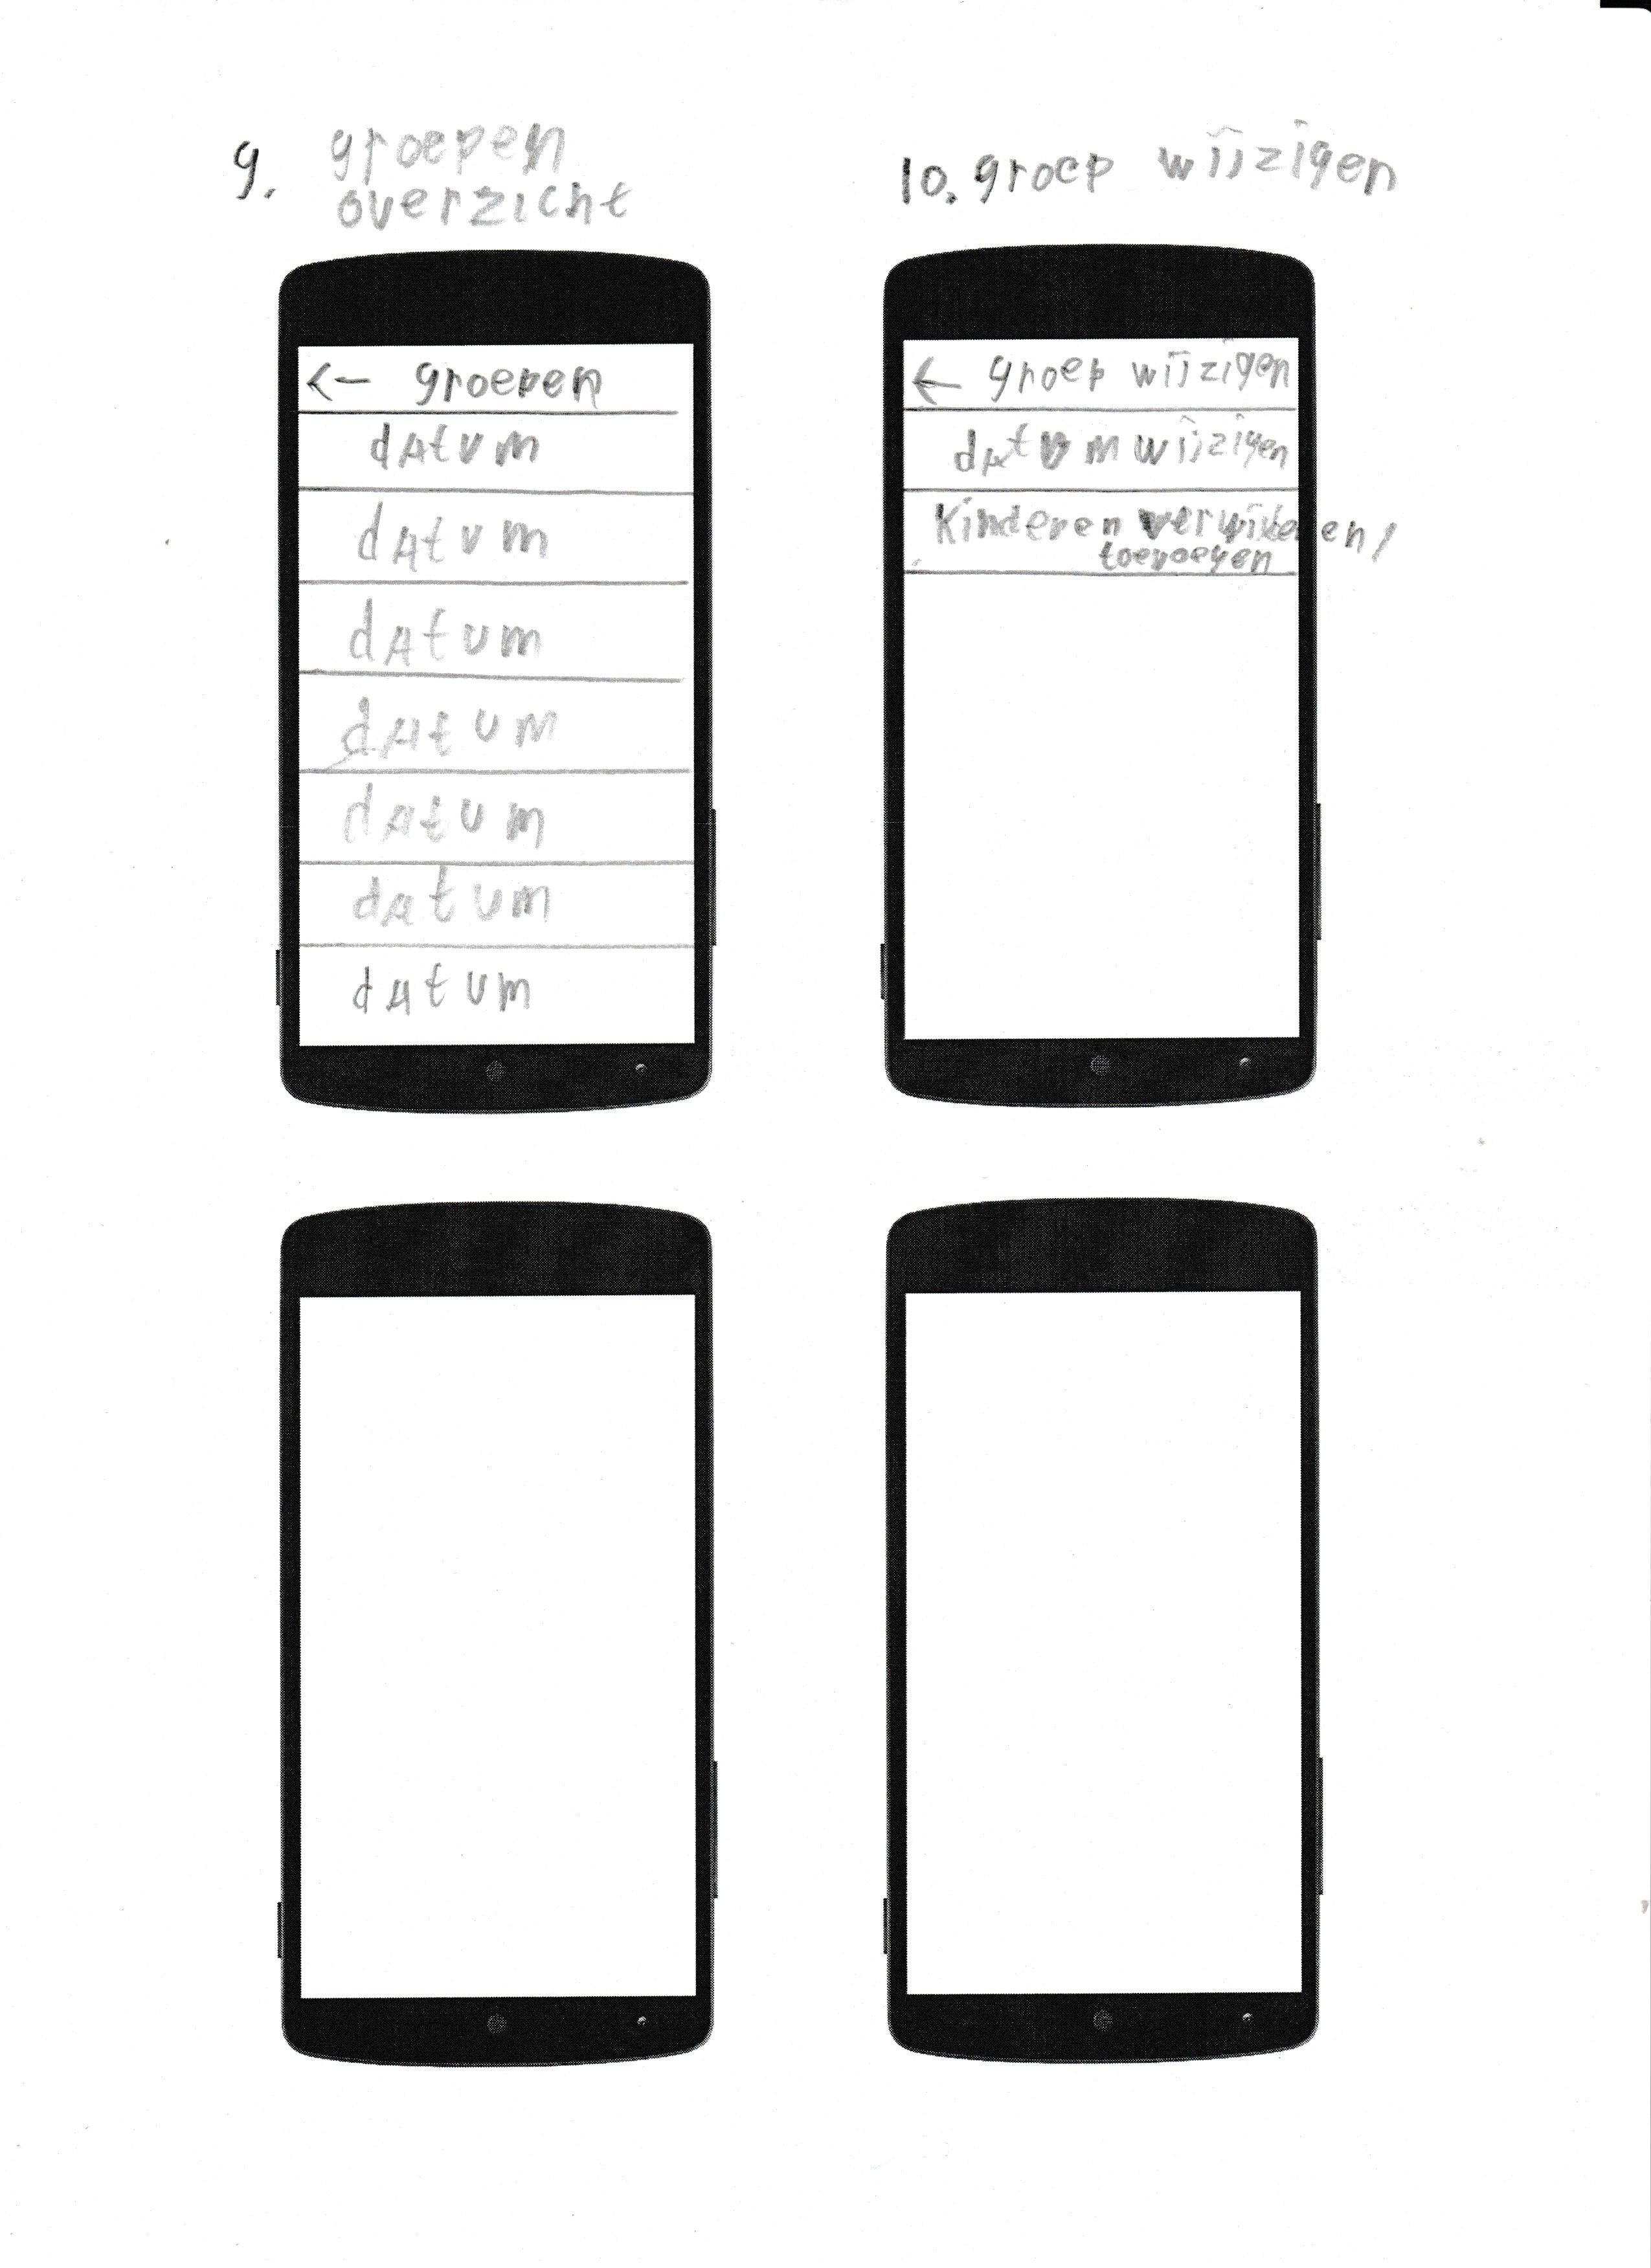 9. groepen
overzicht
← groepen
datum
datum
datum
datum
datum
datum
datum
10. groep wijzigen
← groep wijzigen
datum wijzigen
Kinderen
toevoegen